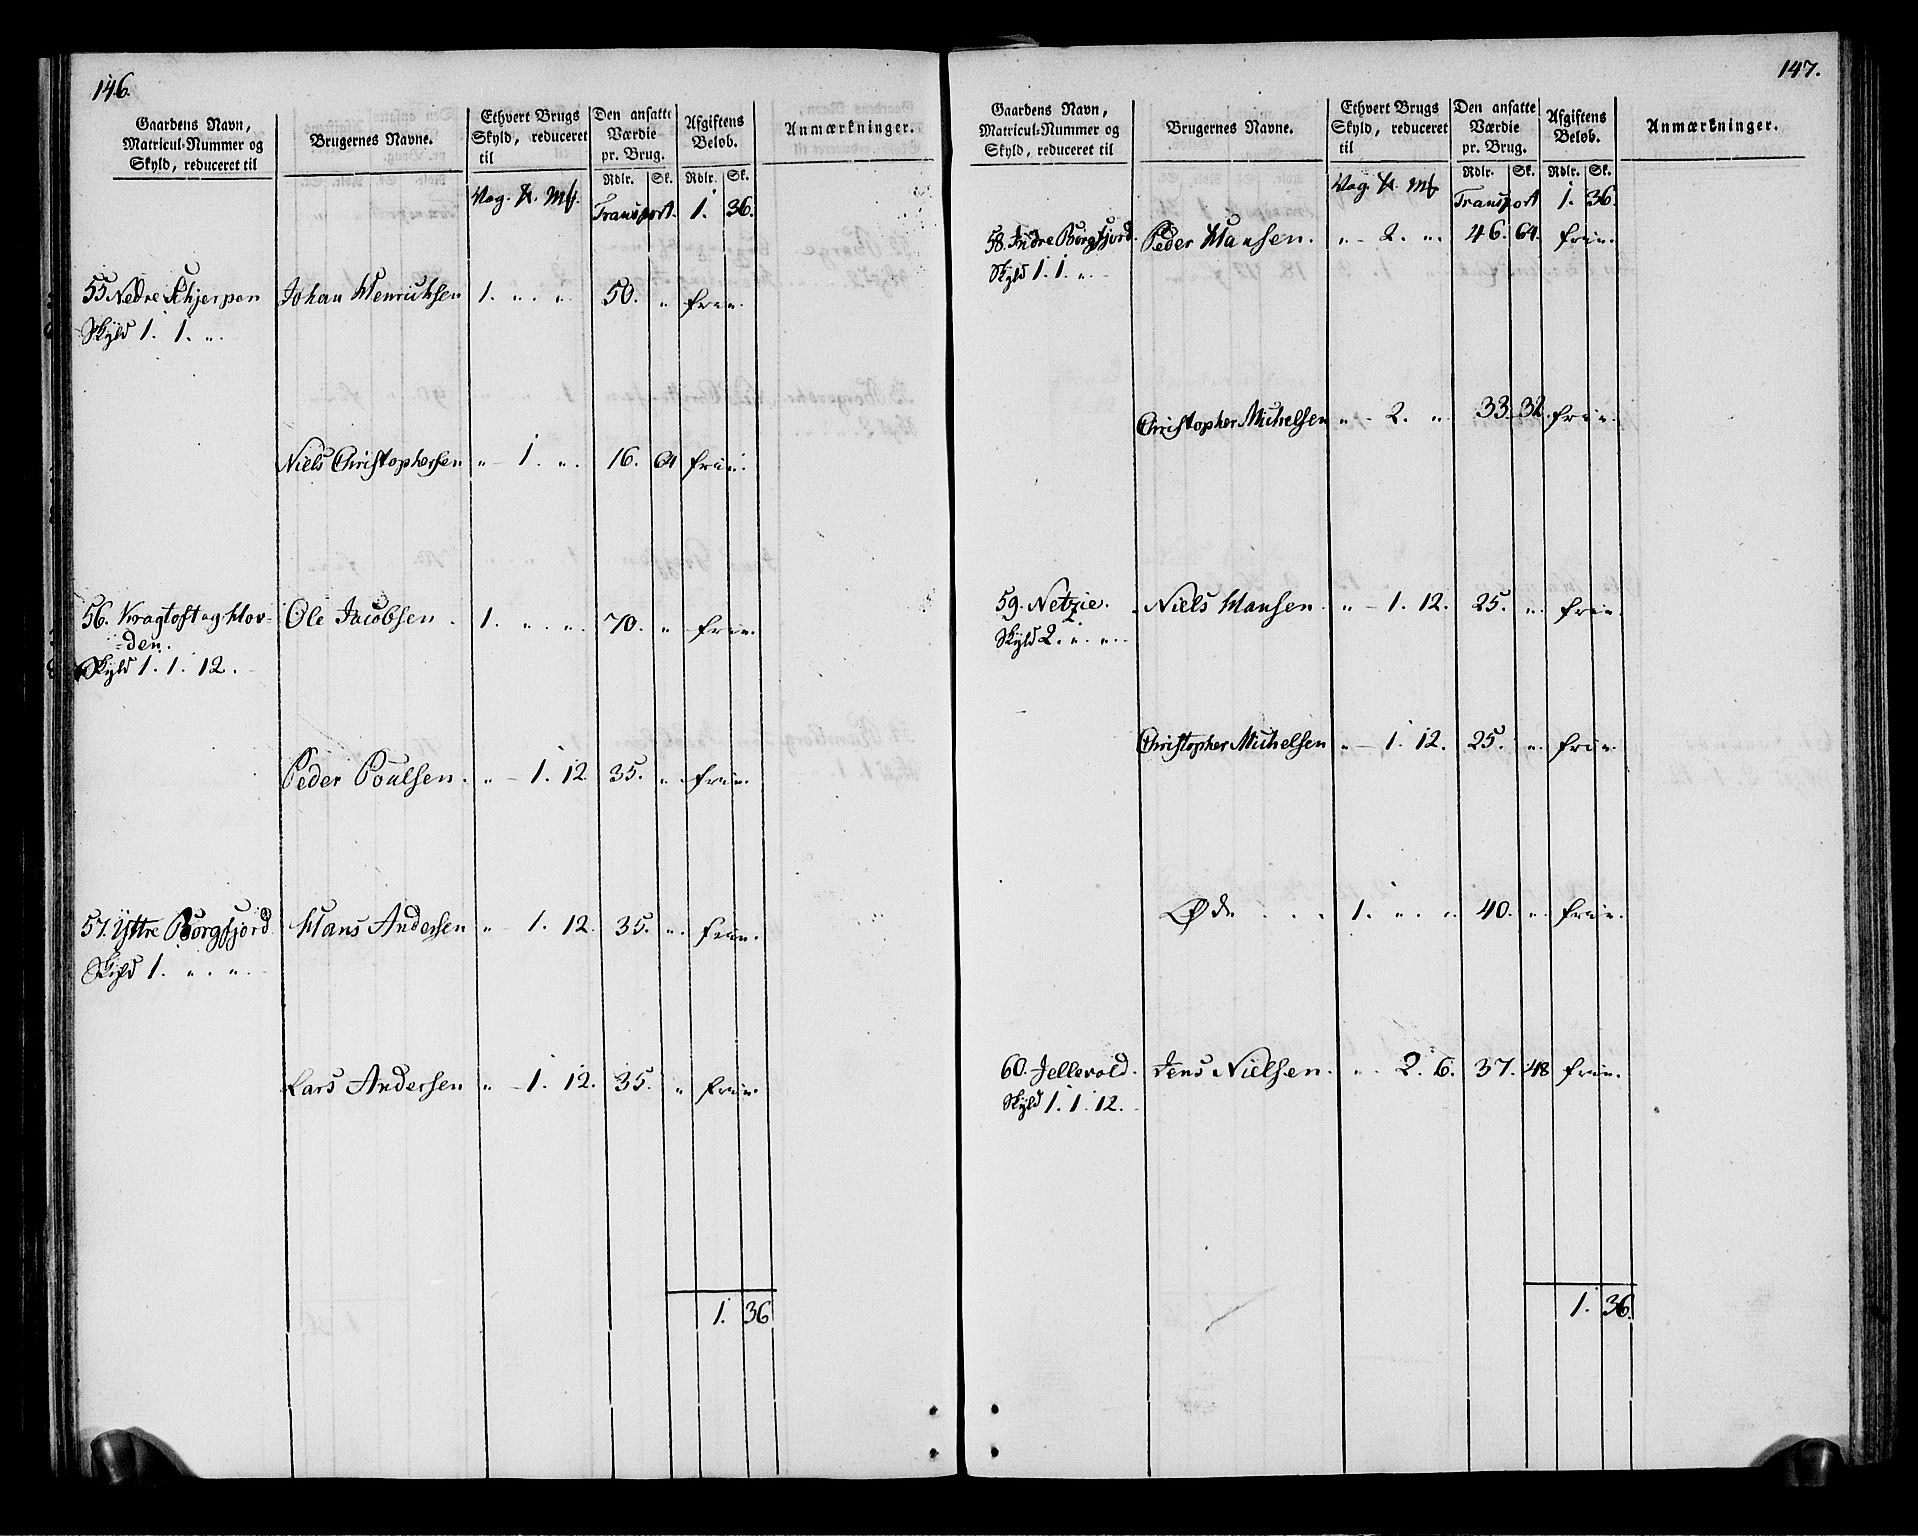 146.
Gaardens Navn, Matricul-Nummer og Skyld, reduceret til
Brugernes Navne.
Ethvert Brugs Skyld, reduceret til
Den ansatte Værdie pr. Brug.
Afgiftens Beløb.
Anmærkninger.
Rdlr. Sk. Rdlr. Sk.
Vog. Mk. Transport. 1. 36.
55 Nedre Schjerpen Johan Henrichsen 1. " " 50. " frie.
Skyld 1. 1. "
Niels Christophersen " - 1. " 16. 64 frie.
56. Kragtoft og Hov- Ole Jacobsen. 1. " " 70. " frie.
=den.
Skyld 1. 1. 12.
Peder Poulsen. " - 1. 12 35. " frie.
57. Yttre Borgfjord Hans Andersen " - 1. 12. 35. " frie.
Skyld 1. " "
Lars Andersen " - 1. 12. 35. " frie.
1. 36
147.
Gaardens Navn, Matricul-Nummer og Skyld, reduceret til
Brugernes Navne.
Ethvert Brugs Skyld, reduceret til
Den ansatte Værdie pr. Brug.
Afgiftens Beløb.
Anmærkninger.
Rdlr. Sk. Rdlr. Sk.
Vog. Mk. Transport 1. 36.
58. Indre Borgfjord. Peder Hansen. " - 2. " 46. 64. frie.
Skyld 1. 1. "
Christopher Michelsen " - 2. " 33. 32. frie.
59. Netzie. Niels Hansen. " - 1. 12. 25. " frie.
Skyld 2. " "
Christopher Michelsen " - 1. 12. 25. " frie.
Øde . . . 1. " " 40. " frie.
60. Jellevold. Jens Nielsen. " 2. 6. 37. 48 frie.
Skyld 1. 1. 12.
1. 36.